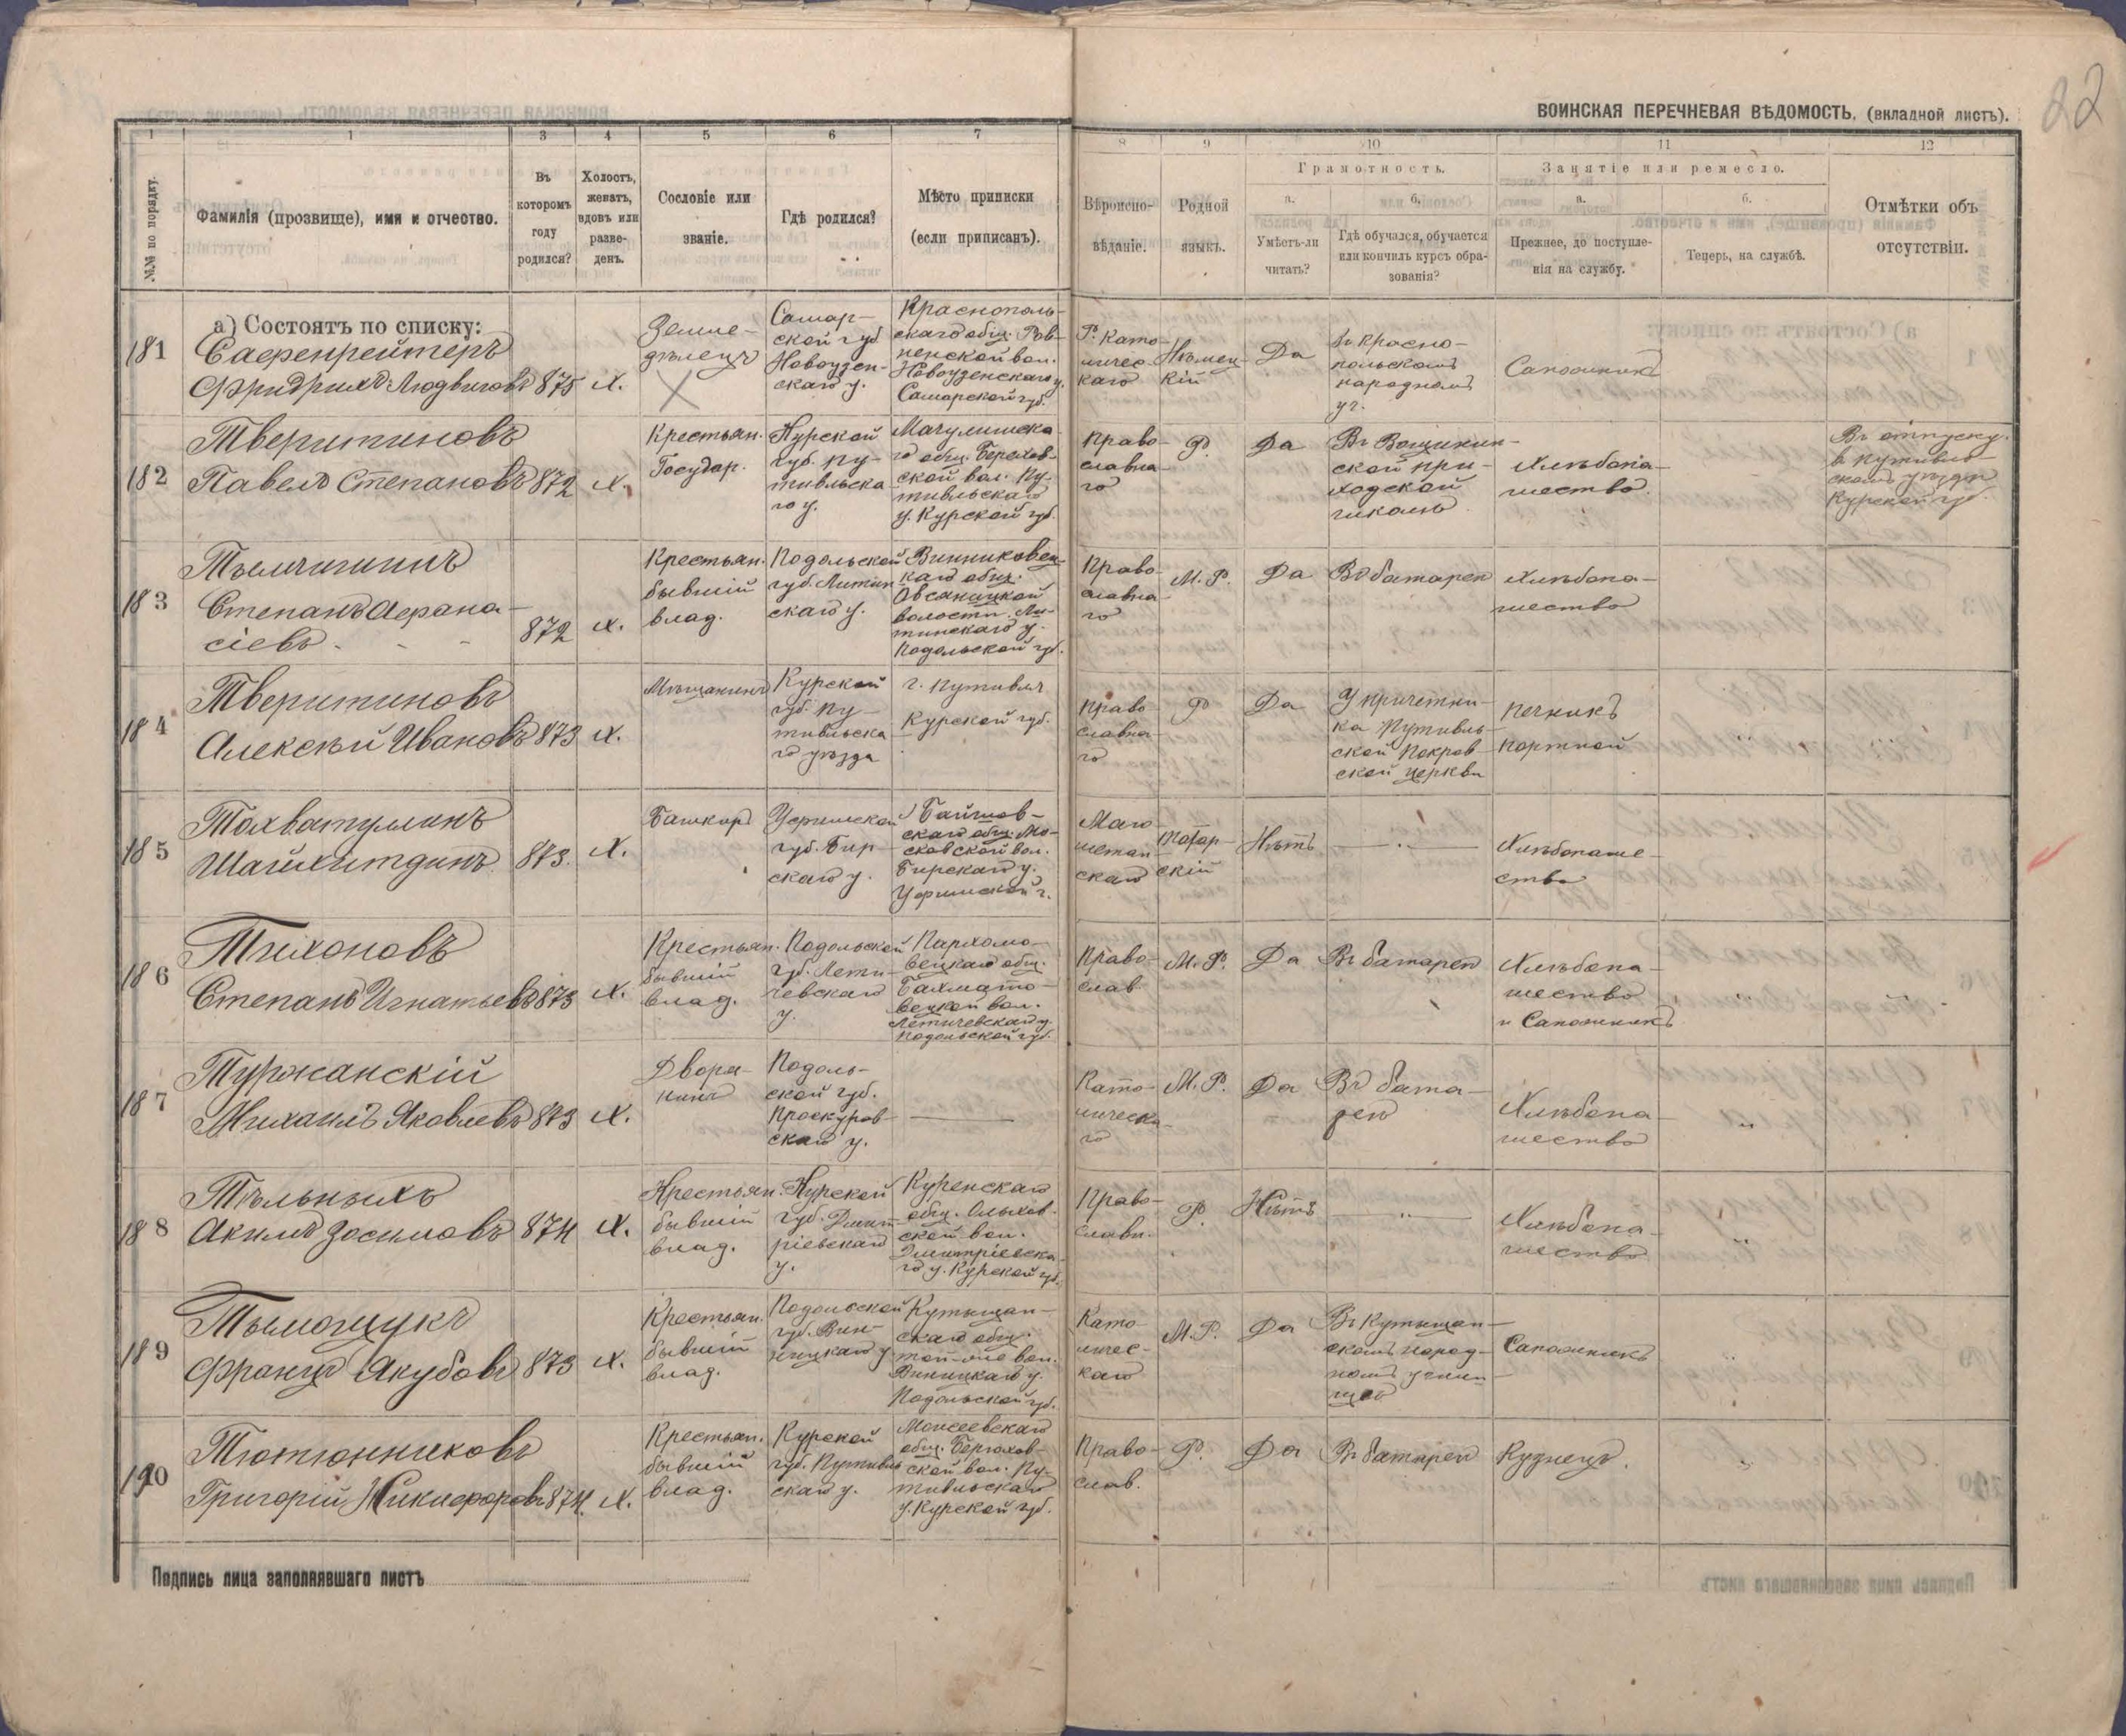 22
ВОИНСКАЯ ПЕРЕЧНЕВАЯ ВѢДОМОСТЬ. (вкладной листъ).
1 1 3 4 5 6 7 8 9 10 11 12
№№ по порядку.
Фамилія (прозвище), имя и отчество.
Въ которомъ году родился?
Холостъ, женатъ, вдовъ или разведенъ.
Сословіе или званіе.
Гдѣ родился?
Мѣсто приписки (если приписанъ).
Вѣроисповѣданіе.
Родной языкъ.
Грамотность.
а. Умѣетъ-ли читать?
б. Гдѣ обучался, обучается или кончилъ курсъ образованія?
Занятіе или ремесло.
а. Прежнее, до поступленія на службу.
б. Теперь, на службѣ.
Отмѣтки объ отсутствіи.
а) Состоятъ по списку:
181
Фридрихъ Людвиговъ 875 Х.
Земле-
дѣлецъ
Самар-
ской губ.
Новоузен-
скаго у.
Краснополь-
скаго общ. Ров-
ненской вол.
Новоузенскаго у.
Самарской губ.
Р. Като-
личес-
каго
Нѣмец-
кій
Да
въ Красно-
польскомъ
народномъ
уч.
Сапожникъ
182
Тверитиновъ
Павелъ Степановъ 872 Х.
Крестьян.
Государ.
Курской
губ. Пу-
тивльска-
го у.
го общ.
ской вол. Пу-
тивльскаго
у. Курской губ.
Право-
славна-
го
Р.
Да
ской при-
ходской
школѣ
Хлѣбопа-
шество
Въ отпуску
въ Путивль-
скомъ уѣздѣ
Курской губ.
183
Степанъ Афана-
сіевъ 872 Х.
Крестьян.
бывшій
влад.
Подольской
губ. Литин-
скаго у.
Винниковец-
каго общ.
волости Ли-
тинскаго у.
Подольской губ.
Право-
славна-
го
М. Р.
Да
Въ батареѣ
Хлѣбопа-
шество
184
Тверитиновъ
Алексѣй Ивановъ 873 Х.
Мѣщанинъ
Курской
губ. Пу-
тивльска-
го уѣзда
г. Путивль
Курской губ.
Право-
славна-
го
Р
Да
У причетни-
ка Путивль-
ской Покров-
ской церкви
печникъ
портной
185
Тохватуллинъ
Шайхитдинъ. 873. Х.
Башкиръ
Уфимской
губ. Бир-
скаго у.
скаго общ. Мо-
сковской вол.
Бирскаго у.
Уфимской г.
Маго-
метан-
скаго
Татар-
скій
Нѣтъ
Хлѣбопаше-
ство
186
Тихоновъ
Степанъ Игнатьевъ 873 Х.
Крестьян.
бывшій
влад.
Подольской
губ. Лети-
чевскаго
у.
Пархомо-
вецкаго общ.
Бахмато-
вецкой вол.
Летичевскаго у.
Подольской губ.
Право-
слав.
М. Р.
Да
Въ батареѣ
Хлѣбопа-
шество
и Сапожникъ
187
Туржанскій
Михаилъ Яковлевъ 873 Х.
Дворя-
нинъ
Подоль-
ской губ.
Проскуров-
скаго у.
Като-
лическа-
го
М. Р.
Да
Въ бата-
реѣ
Хлѣбопа-
шество
188
Тѣльныхъ
Акимъ Зосимовъ 874 Х.
Крестьян.
бывшій
влад.
Курской
губ. Дмит-
ріевскаго
у.
Куренскаго
общ.
ской вол.
Дмитріевска-
го у. Курской губ.
Право-
славн.
Р.
Нѣтъ
Хлѣбопа-
шество
189
Тымощукъ
Францъ Якубовъ 873 Х.
Крестьян.
бывшій
влад.
Подольской
губ. Вин-
ницкаго у
Кутыщан-
скаго общ.
той-же вол.
Винницкаго у.
Подольской губ.
Като-
личес-
каго
М. Р.
Да
Въ Кутыщан-
скомъ народ-
номъ учили-
щѣ
Сапожникъ
190
Тютюнниковъ
Григорій Никифоровъ 874. Х.
Крестьян.
бывшій
влад.
Курской
губ. Путивль-
скаго у.
Моисеевскаго
общ.
ской вол. Пу-
тивльскаго
у. Курской губ.
Право-
слав.
Р.
Да
Въ батареѣ
Кузнецъ.
Подпись лица заполнявшаго листъ